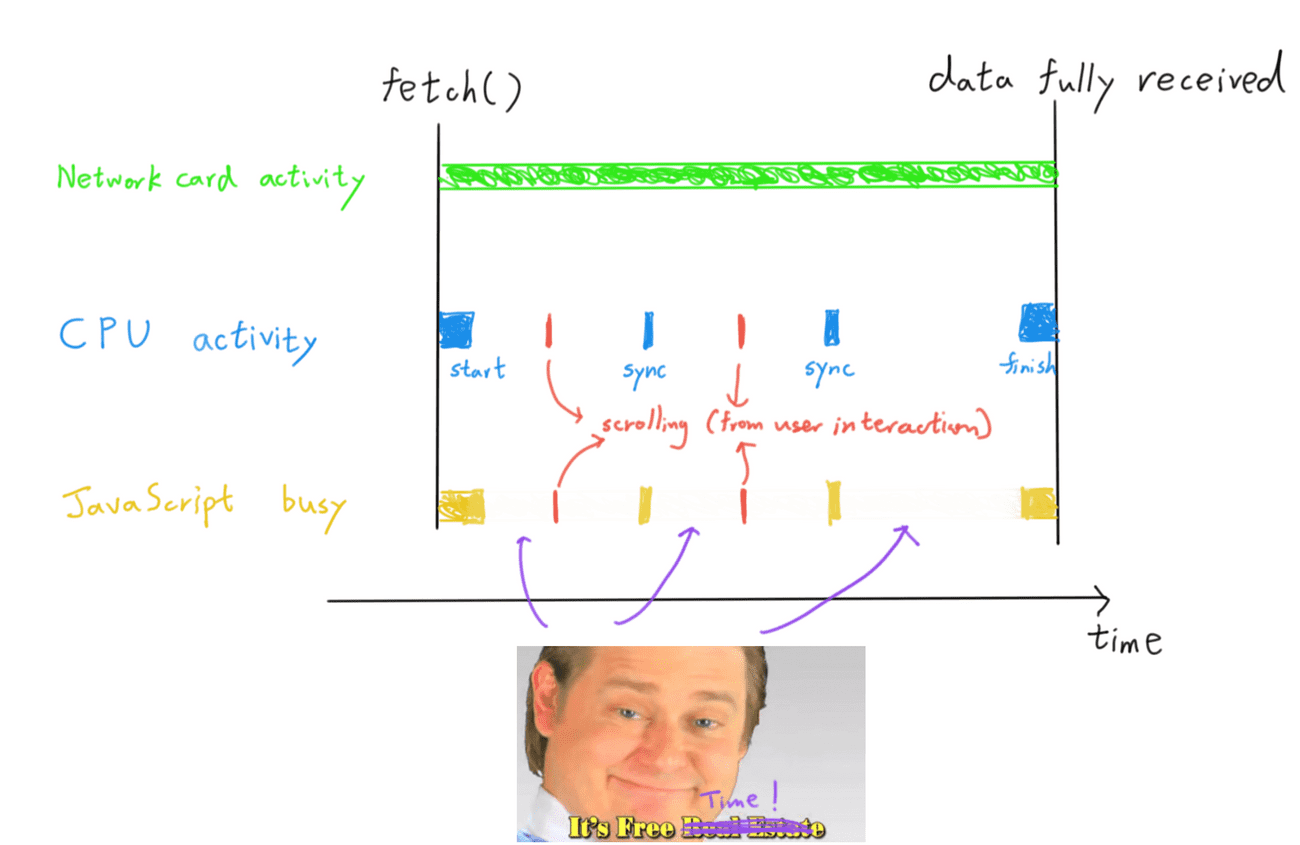 fetch()
data fully received
Network card activity
CPU activity
start
sync
sync
finish
scrolling (from user interaction)
JavaScript busy
time
Time!
It's Free Real Estate